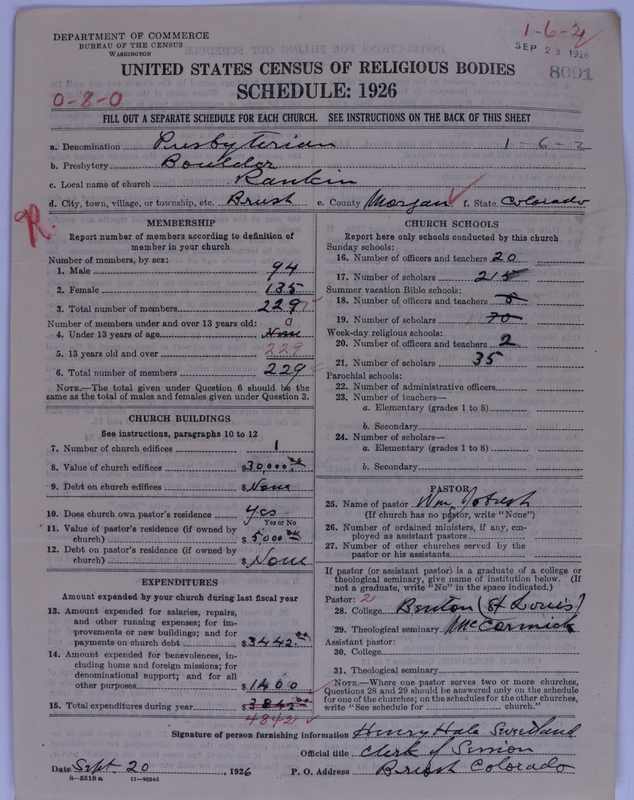 DEPARTMENT OF COMMERCE
BUREAU OF THE CENSUS
WASHINGTON
1-6-2
SEP 23 1926
8091
UNITED STATES CENSUS OF RELIGIOUS BODIES
SCHEDULE: 1926
0-8-0
FILL OUT A SEPARATE SCHEDULE FOR EACH CHURCH. SEE INSTRUCTIONS ON THE BACK OF THIS SHEET
a. Denomination Presbyterian 1-6-2
b. Presbytery Boulder
c. Local name of church Rankin
d. City, town, village, or township, etc. Brush e. County Morgan f. State Colorado
R.
MEMBERSHIP
Report number of members according to definition of member in your church
Number of members, by sex:
1. Male 94
2. Female 135
3. Total number of members 229
Number of members under and over 13 years old: 0
4. Under 13 years of age None
5. 13 years old and over 229
6. Total number of members 229
NOTE.—The total given under Question 6 should be the
same as the total of males and females given under Question 3.
CHURCH BUILDINGS
See instructions, paragraphs 10 to 12
7. Number of church edifices 1
8. Value of church edifices $30,000.00
9. Debt on church edifices $None
10. Does church own pastor's residence Yes
Yes or No
11. Value of pastor's residence (if owned by
church) $5,000.00
12. Debt on pastor's residence (if owned by
church) $None
EXPENDITURES
Amount expended by your church during last fiscal year
13. Amount expended for salaries, repairs,
and other running expenses; for im-
provements or new buildings; and for
payments on church debt $3442.00
14. Amount expended for benevolences, in-
cluding home and foreign missions; for
denominational support; and for all
other purposes $1400
15. Total expenditures during year $3842.00
4842
CHURCH SCHOOLS
Report here only schools conducted by this church
Sunday schools:
16. Number of officers and teachers 20
17. Number of scholars 215
Summer vacation Bible schools:
18. Number of officers and teachers 8
19. Number of scholars 70
Week-day religious schools:
20. Number of officers and teachers 2
21. Number of scholars 35
Parochial schools:
22. Number of administrative officers
23. Number of teachers—
a. Elementary (grades 1 to 8)
b. Secondary
24. Number of scholars—
a. Elementary (grades 1 to 8)
b. Secondary
PASTOR
25. Name of pastor Wm
(If church has no pastor, write "None")
26. Number of ordained ministers, if any, em-
ployed as assistant pastors
27. Number of other churches served by the
pastor or his assistants
If pastor (or assistant pastor) is a graduate of a college or
theological seminary, give name of institution below. (If
not a graduate, write "No" in the space indicated.)
Pastor: 2
28. College Benton (St Louis)
29. Theological seminary McCormick
Assistant pastor:
30. College
31. Theological seminary
NOTE.—Where one pastor serves two or more churches,
Questions 28 and 29 should be answered only on the schedule
for one of the churches; on the schedules for the other churches,
write "See schedule for church."
Signature of person furnishing information Henry Hale
Official title Clerk of Session
Date Sept. 20, 1926 P. O. Address Brush Colorado
8-5318 a